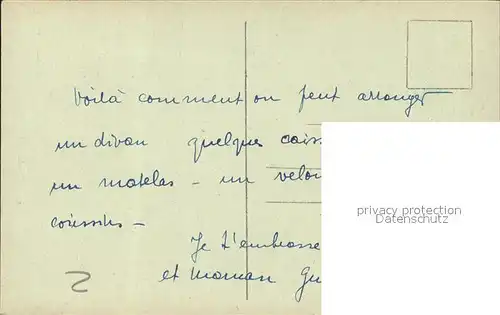 Voilà comment on peut arranger
un divan quelques caiss
un matelas – un velou
coussins –
Je t'embrasse
et maman Gu
privacy protection
Datenschutz
2